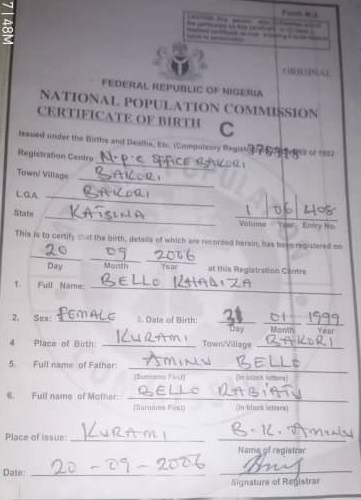 7 | 48M
Form B.2
ORIGINAL
FEDERAL REPUBLIC OF NIGERIA
NATIONAL POPULATION COMMISSION
CERTIFICATE OF BIRTH C
Issued under the Births and Deaths, Etc. (Compulsory of 1992
Registration Centre N.P.C OFFICE BAKORI
Town/Village BAKORI
L.G.A. BAKORI
State KATSINA 1 06 408
Volume Year Entry No.
This is to certify that the birth, details of which are recorded herein, has been registered on
20 09 2006
Day Month Year at this Registration Centre
1. Full Name: BELLO KHADIZA
2. Sex: FEMALE 3. Date of Birth: 01 1999
Day Month Year
4 Place of Birth: KURAMI Town/Village BAKORI
5. Full name of Father: AMINU BELLO
(Surname First) (In block letters)
6. Full name of Mother: BELLO RABIATU
(Surname First) (In block letters)
Place of issue: KURAMI B. K. AMINU
Name of registrar
Date: 20 - 09 - 2006
Signature of Registrar